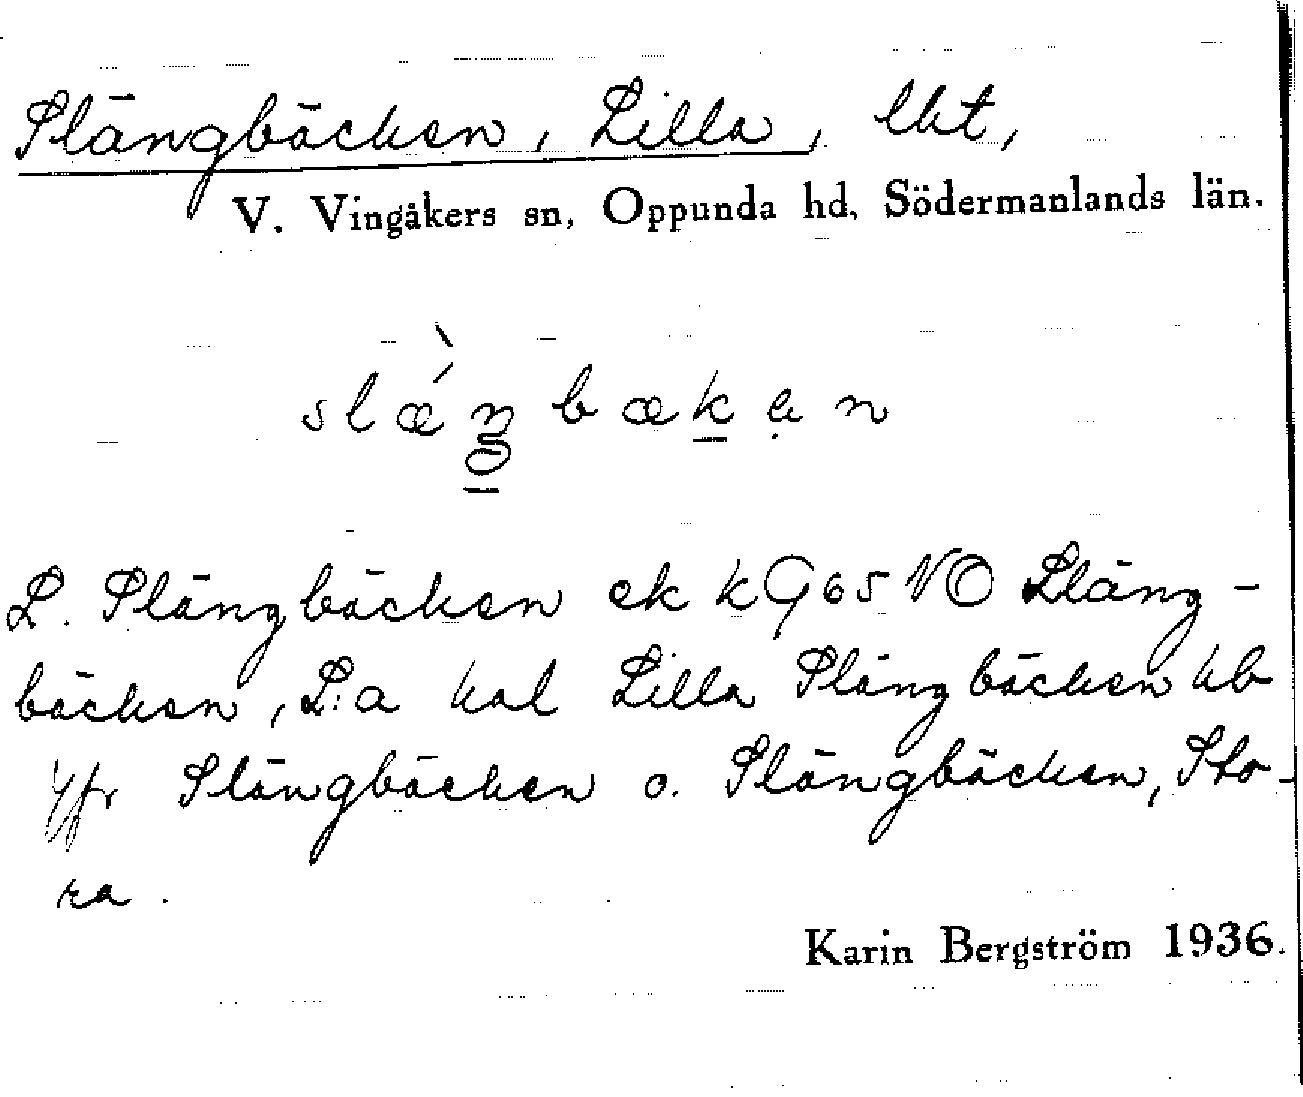 Slängbäcken, Lilla, lht,
V. Vingåkers sn, Oppunda hd, Södermanlands län.
slæ̀ŋbækən
L. Slängbäcken ek kG65 NO Släng-
bäcken, L:a hal Lilla Slängbäcken hb
Jfr Slängbäcken o. Slängbäcken, Sto-
ra.
Karin Bergström 1936.